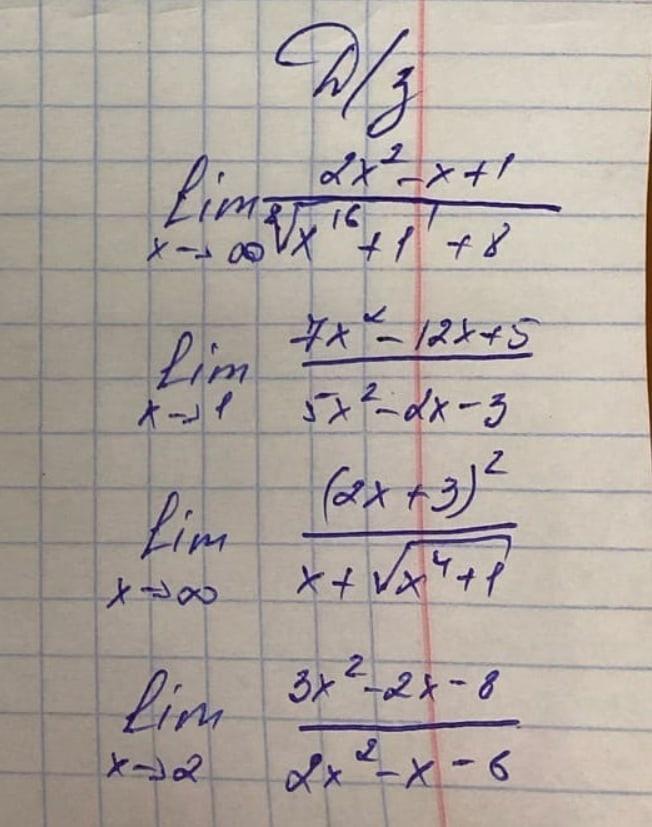 Д/з
lim x→∞ (2x² - x + 1) / (⁸√(x¹⁶ + 1) + 8)
lim x→1 (7x² - 12x + 5) / (5x² - 2x - 3)
lim x→∞ (2x + 3)² / (x + √(x⁴ + 1))
lim x→2 (3x² - 2x - 8) / (2x² - x - 6)